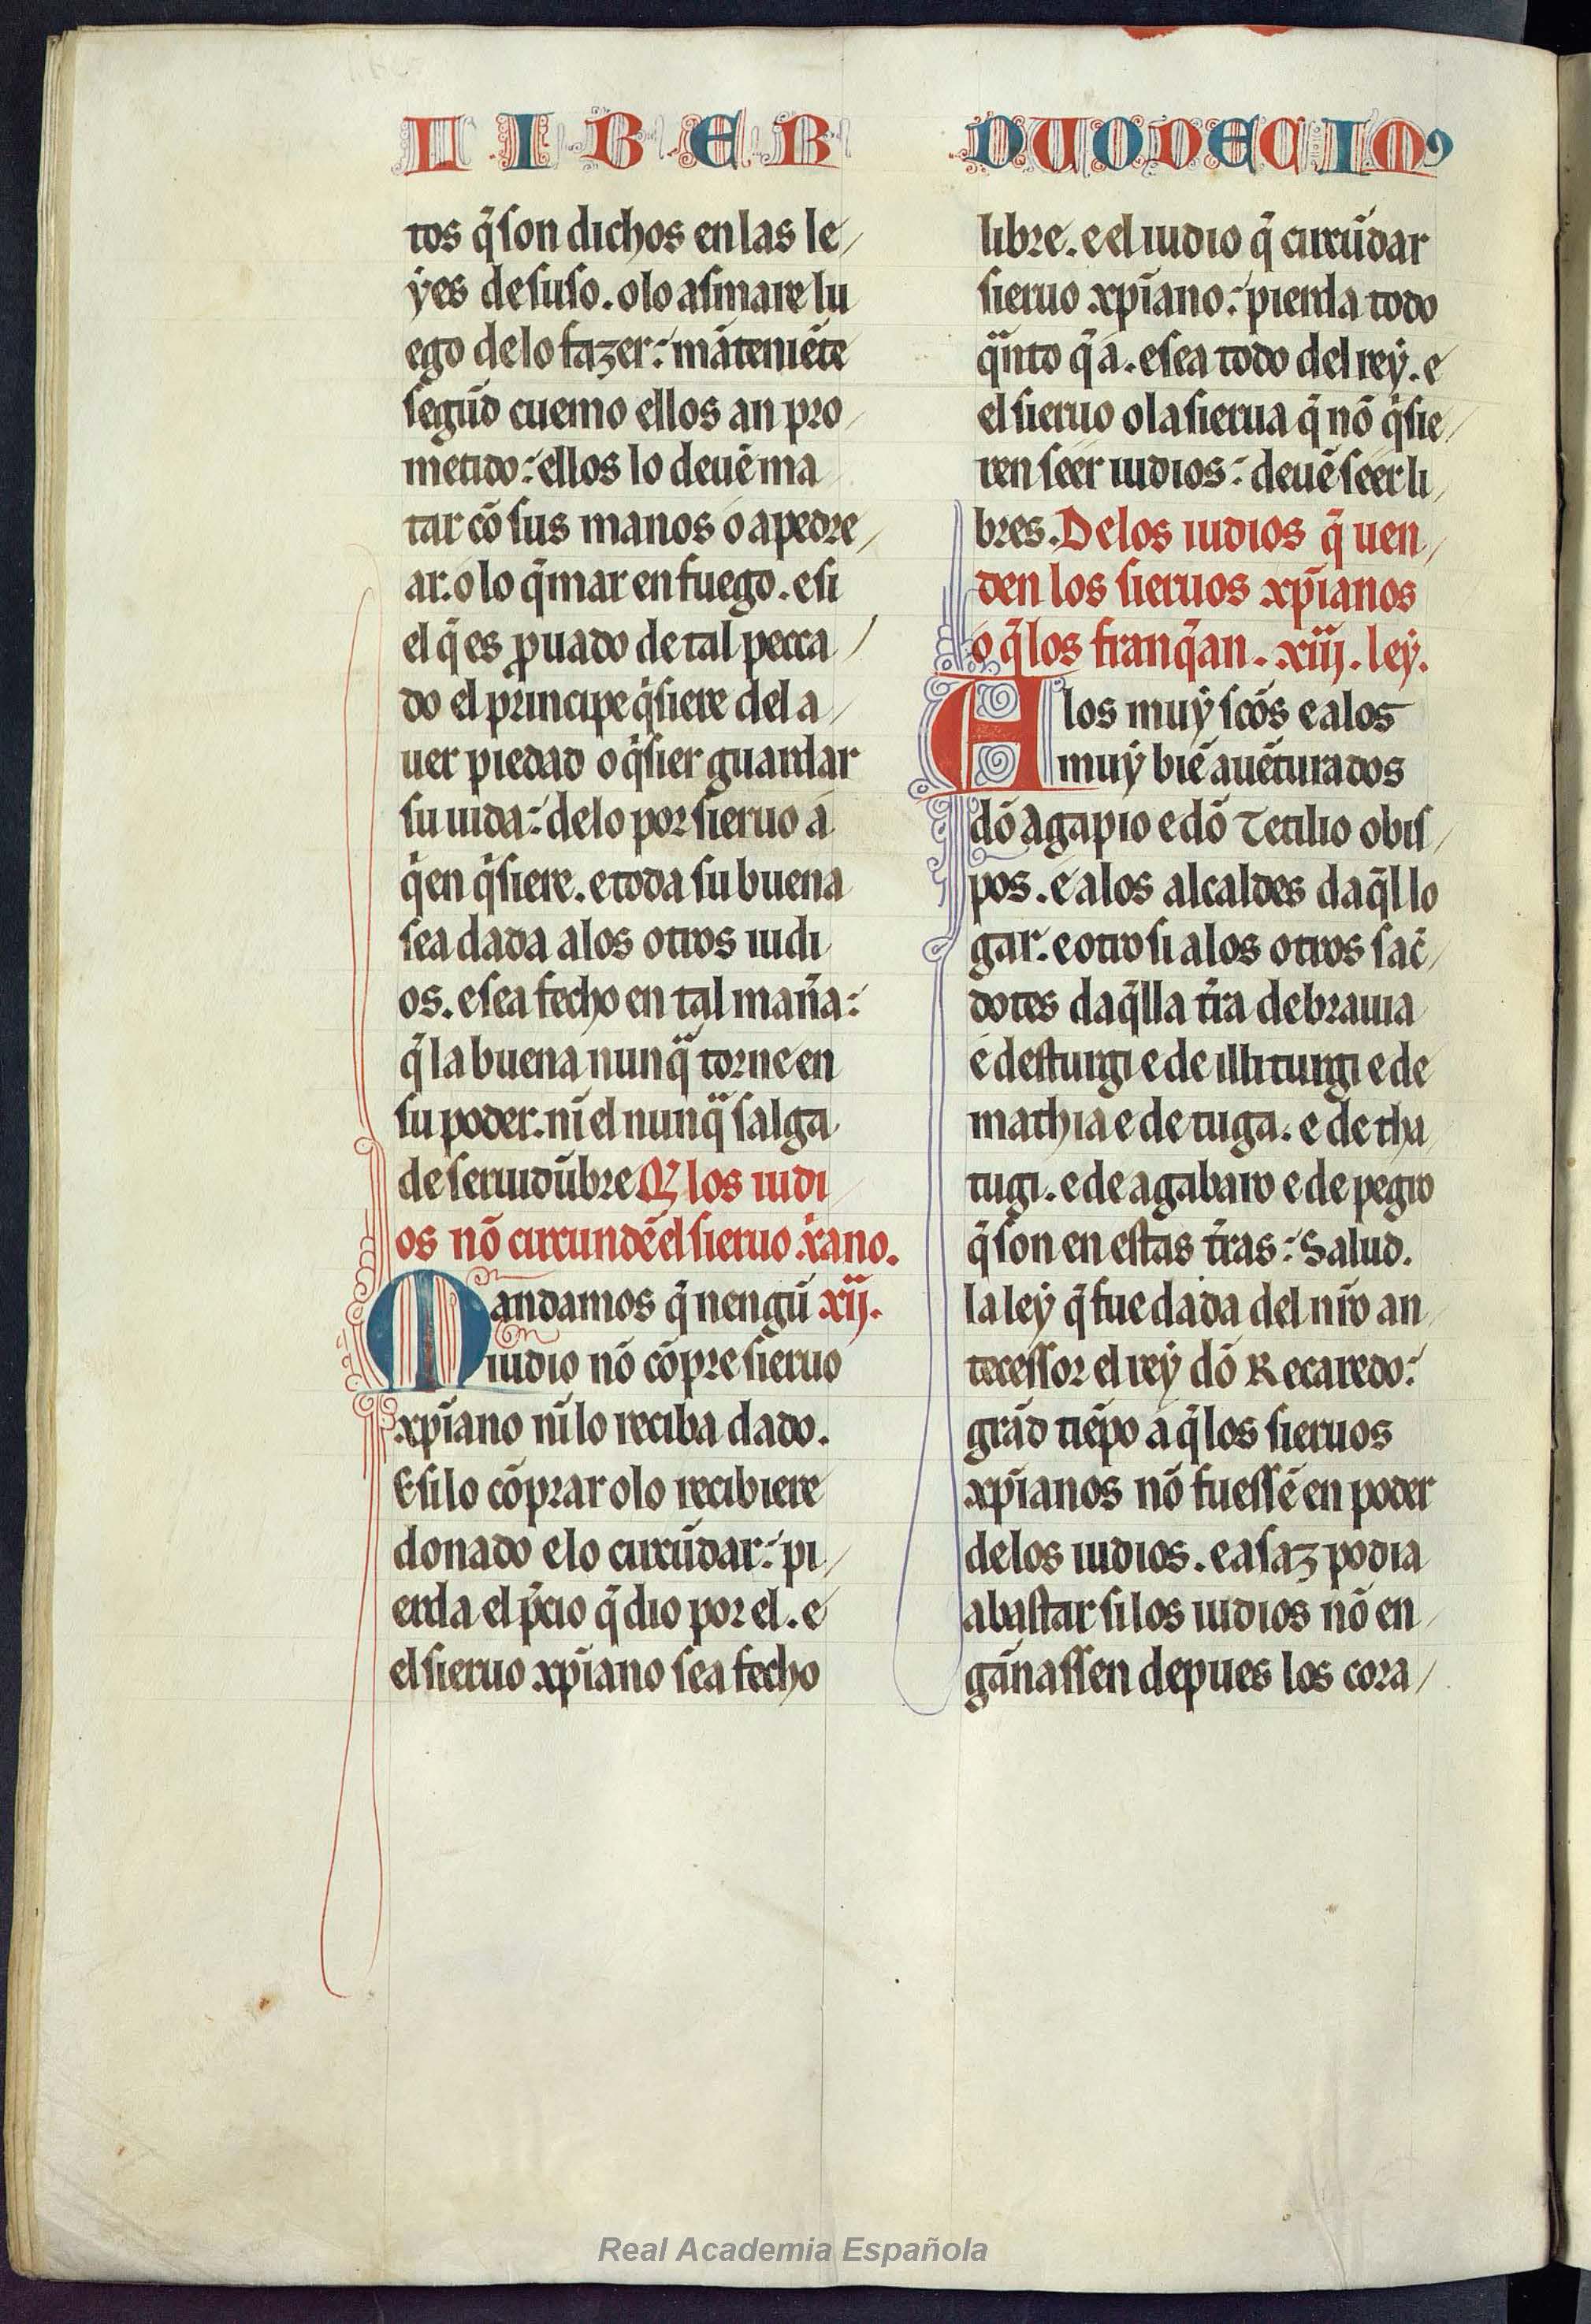 LIBER DUODECIMꝰ
tos q̄ son dichos en las le/
ẏes de suso. o lo asmare lu
ego de lo fazer: mãteniẽte
segũd cuemo ellos an pro/
metido: ellos lo deuẽ ma
tar cõ sus manos o apedre/
ar. o lo q̄mar en fuego. e si
el q̄ es ꝓuado de tal pecca/
do el prıncipe q̇siere del a/
uer piedad o q̇sier guardar
su uida: delo por sieruo a
q̇en q̇siere. e toda su buena
sea dada a los otros iudi
os. e sea fecho en tal maña:
q̄ la buena nunqᷓ torne en
su poder. nĩ el nunqᷓ salga
de seruidũbre Q̃ los iudi/
os nõ circundẽ el sieruo xᷓano.
Mandamos q̄ nengũ xij.
iudio nõ cõpre sieruo
xp̃iano nĩ lo reciba dado.
E si lo cõprar o lo recibiere
donado e lo circũdar: pi/
erda el p̃cio q̄ dio por el. e
el sieruo xp̃iano sea fecho
libre. e el iudio q̄ circũdar
sieruo xp̃iano: pierda todo
qᷓnto q̄ a. e sea todo del reẏ. e
el sieruo o la sierua q̄ nõ q̇sie/
ren seer iudios: deuẽ seer li/
bres. De los iudios q̄ uen/
den los sieruos xp̃ianos
o q̄ los franq̄an. xiij. leẏ.
A los muẏ sc̃os e a los
muẏ biẽ auẽturados
dõ Agapio e dõ Cecilio obis/
pos. e a los alcaldes daq̄l lo
gar. e otro si a los otros sac̃/
dotes daq̄lla tr̃a de brauia
e desturgi e de illiturgi e de
mathia e de tuga. e de tha/
tugi. e de agabaro e de pegro
q̄ son en estas tr̃as: Salud.
la leẏ q̄ fue dada del nr̃o an/
tecessor el reẏ dõ Recaredo:
grãd tiẽpo a q̄ los sieruos
xp̃ianos nõ fuessẽ en poder
de los iudios. e asaz podia
abastar si los iudios nõ en/
gãnassen depues los cora/
Real Academia Española